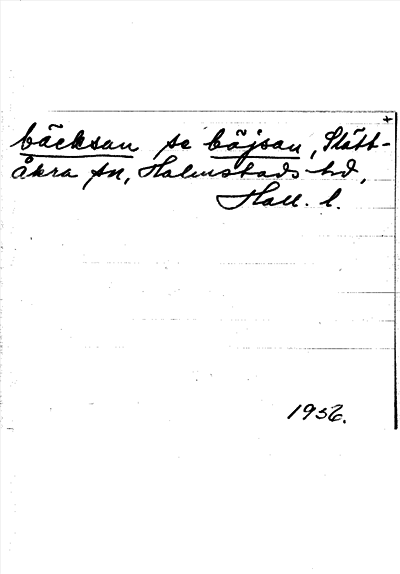 bäcksan se böjsan, Slätt-
åkra sn, Halmstads hd,
Hall. l.
1932.